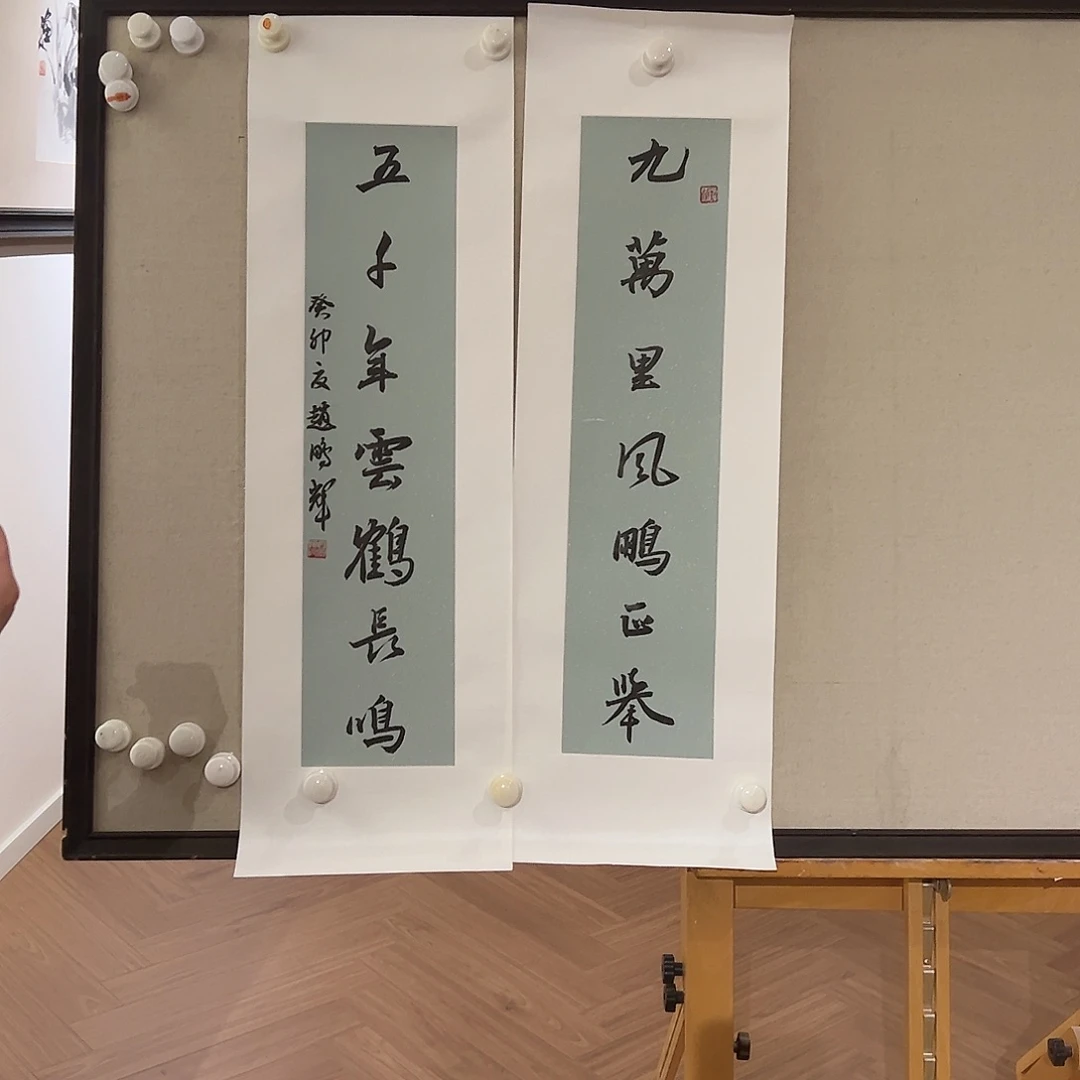 九萬里風鵬正舉
五千年雲鶴長鳴
癸卯夏趙鵬輝